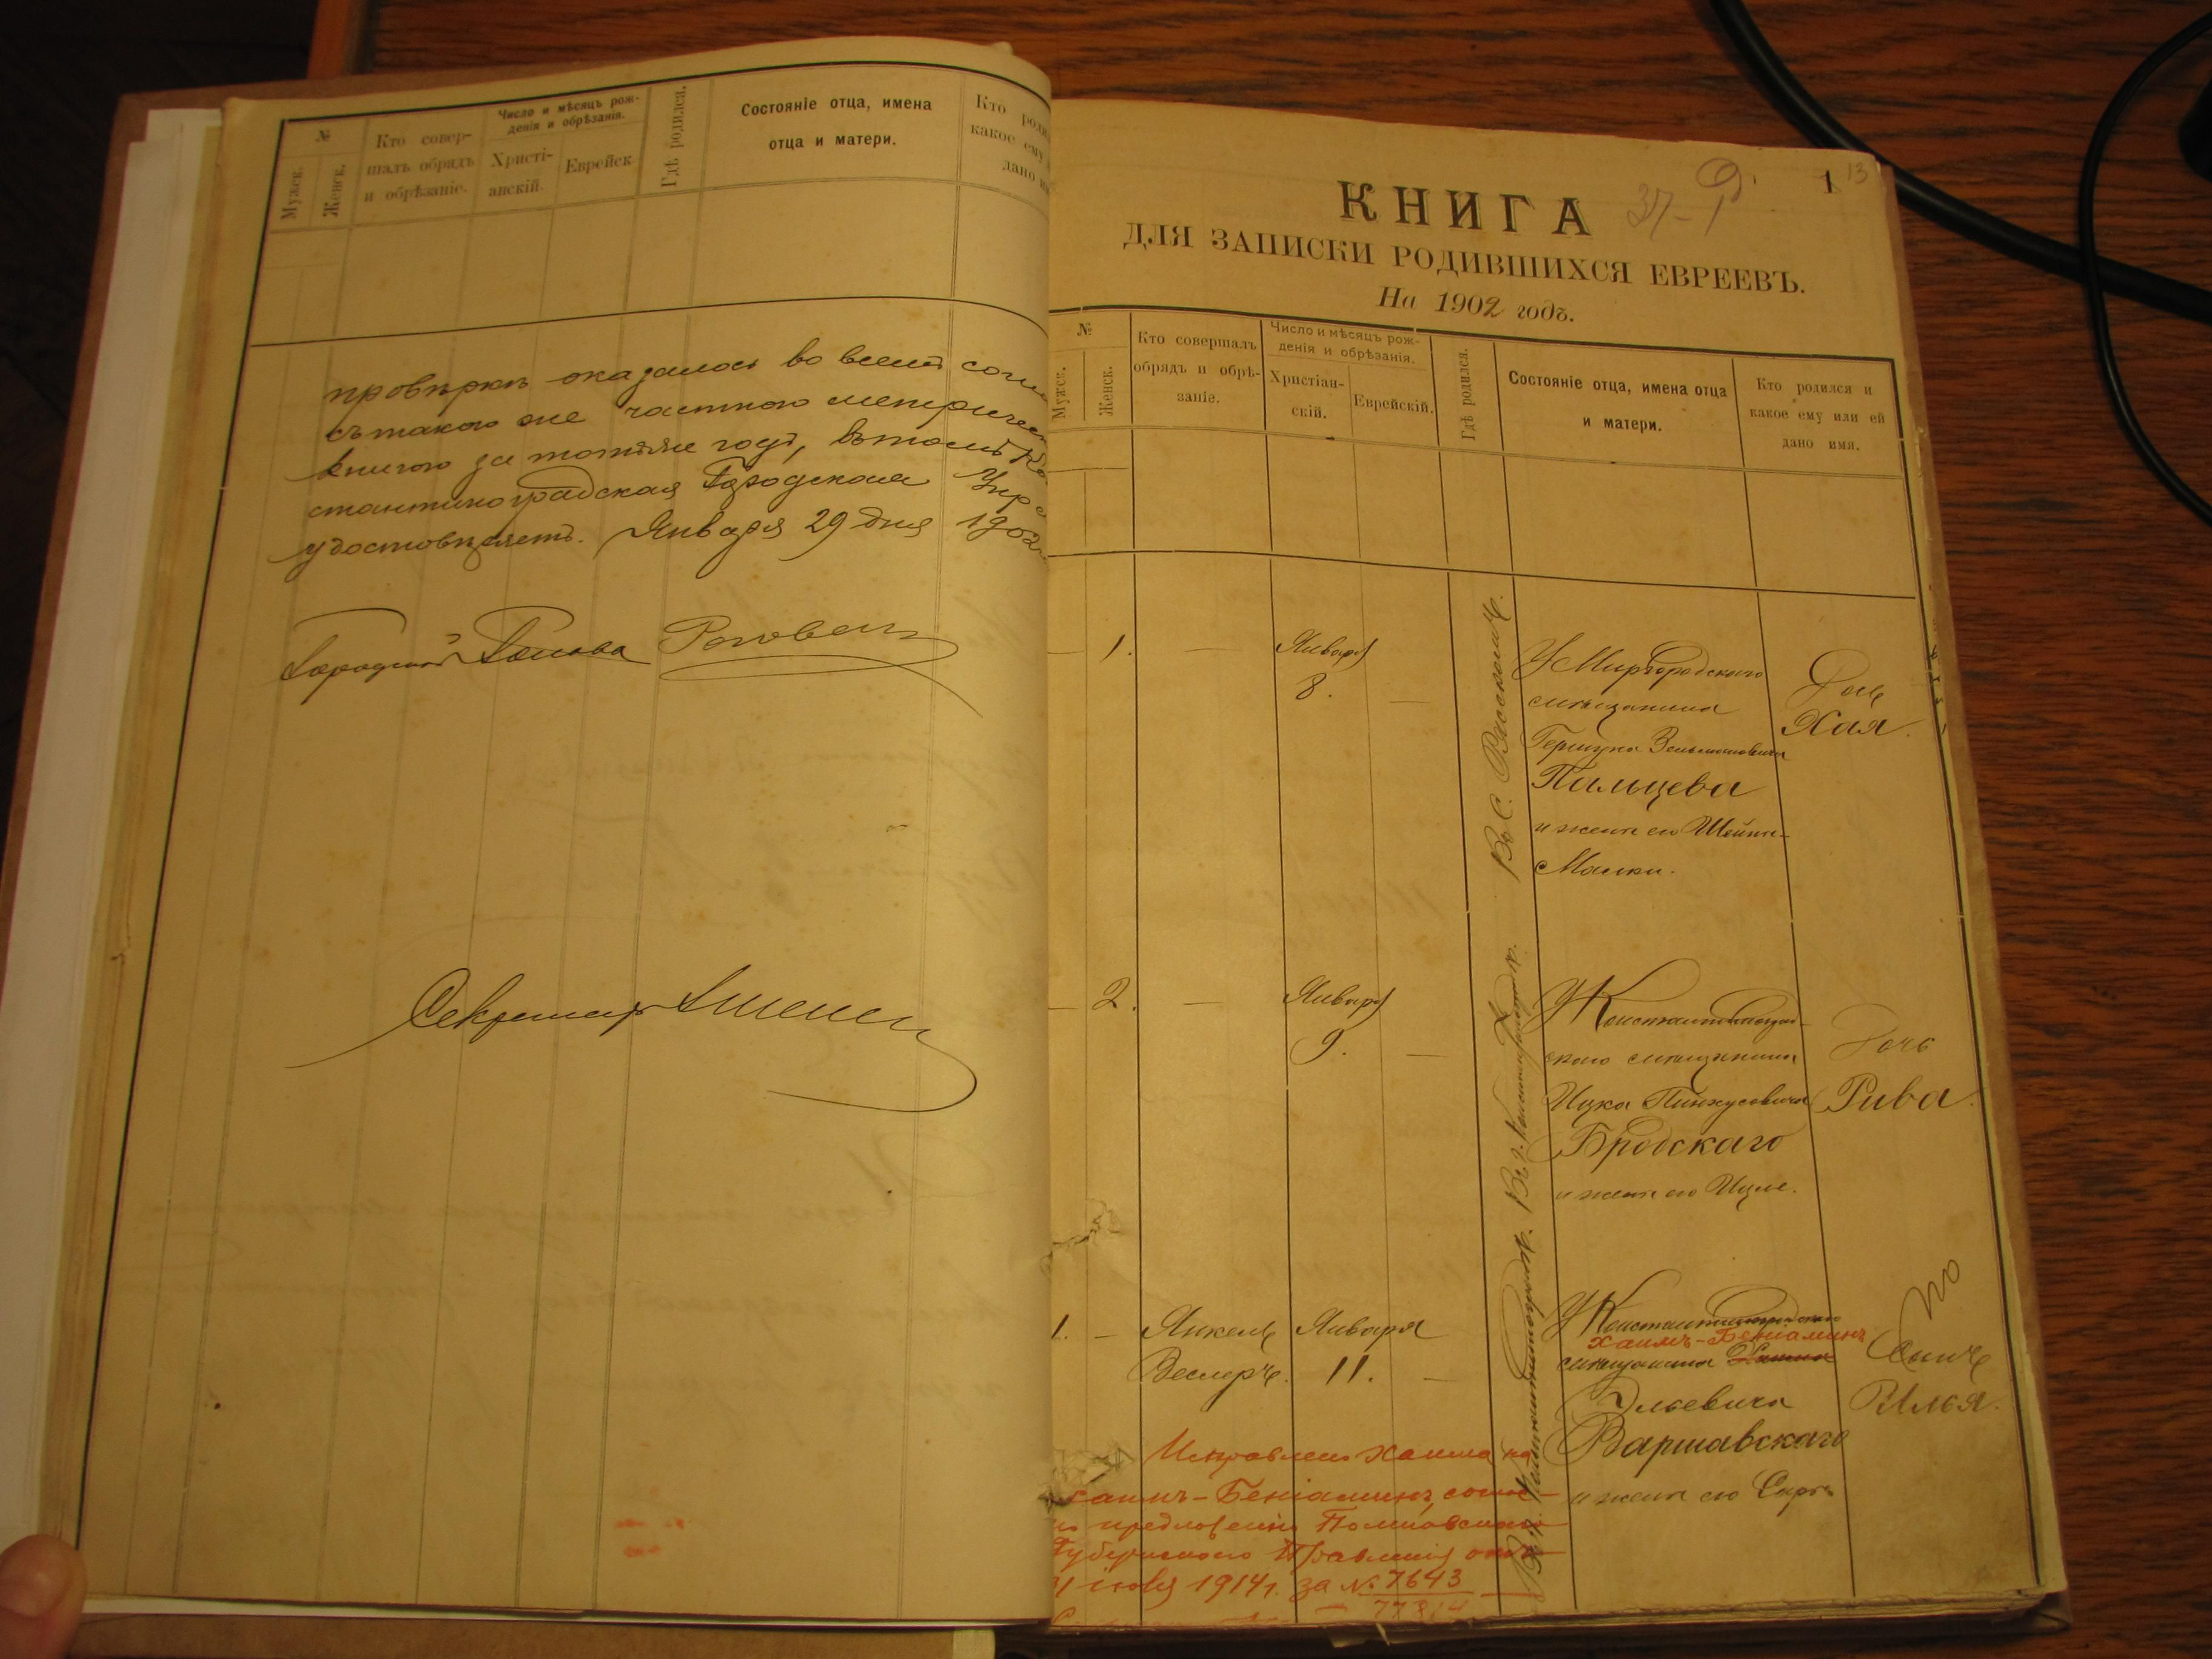 №
Мужск.
Женск.
Кто совер-
шалъ обрядъ
и обрѣзаніе.
Число и мѣсяцъ рож-
денія и обрѣзанія.
Христі-
анскій.
Еврейск
Гдѣ родился.
Состояніе отца, имена
отца и матери.
Кто роди
какое ему
дано
провѣркѣ оказалось во всемъ
съ такою же частною метричес
книгою за тотъ же годъ, въ томъ
стантиноградская Городская Упр
удостовѣряетъ. Января 29 дня 1902
Городской Голова
Секретарь
КНИГА
37-
1
13
ДЛЯ ЗАПИСКИ РОДИВШИХСЯ ЕВРЕЕВЪ.
На 1902 годъ.
№
Мужск.
Женск.
Кто совершалъ
обрядъ и обрѣ-
заніе.
Число и мѣсяцъ рож-
денія и обрѣзанія.
Христіан-
скій.
Еврейскій.
Гдѣ родился.
Состояніе отца, имена отца
и матери.
Кто родился и
какое ему или ей
дано имя.
1. — Января
8. —
У Миргородскаго
мѣщанина
Гершуна Зельмановича
Пальцева
и жены его Шейны-
Малки.
Дочь
Хая.
2. — Января
9. —
Въ г. Константиноградѣ.
У Константиноград-
скаго мѣщанина
Ицка Пинхусовича
Бродскаго
и жены его
Дочь
Рива.
1. — Янкель Января
Веслеръ. 11. —
Въ г. Константиноградѣ.
У Константиноградскаго
Хаимъ-Беніаминъ
мѣщанина
Эльевича
Варшавскаго
и жены его Сары
Сынъ
Илья.
Исправлено Хаима на
Хаимъ-Беніаминъ, соглас-
но предложенію Полтавскаго
Губернскаго Правленія отъ
1914 г. за № 7643